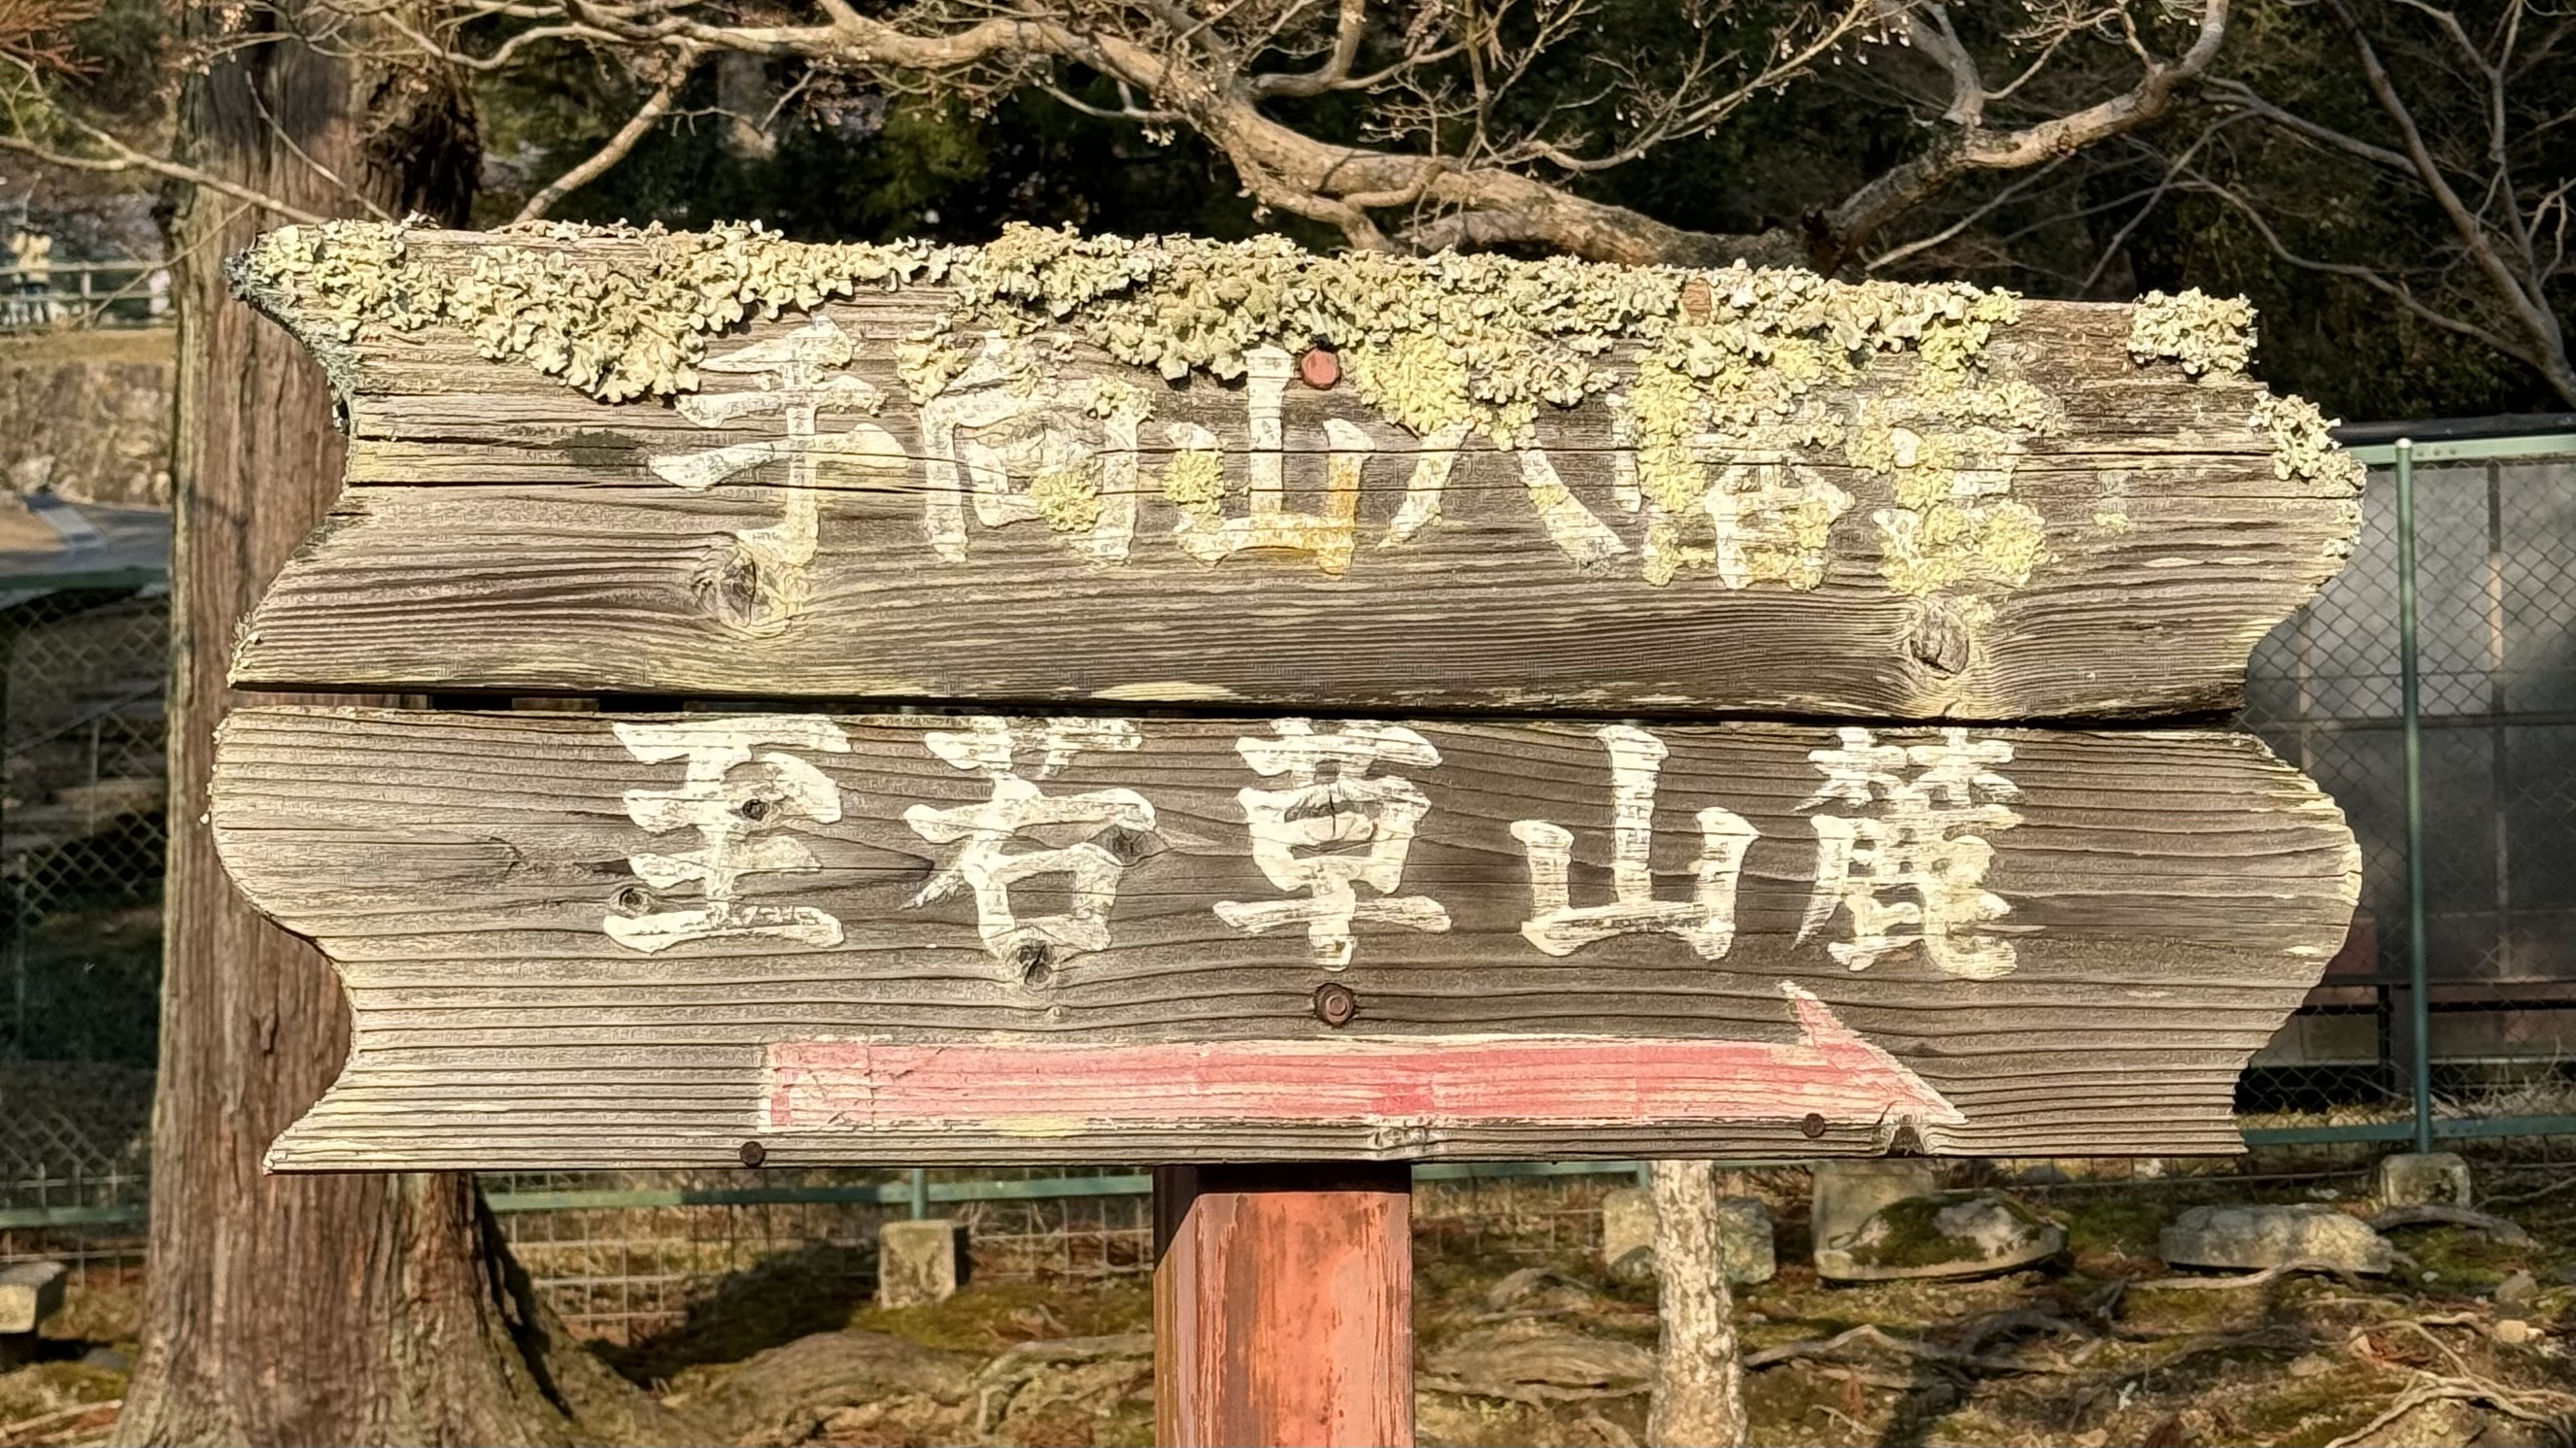 手向山八幡宮
至若草山麓